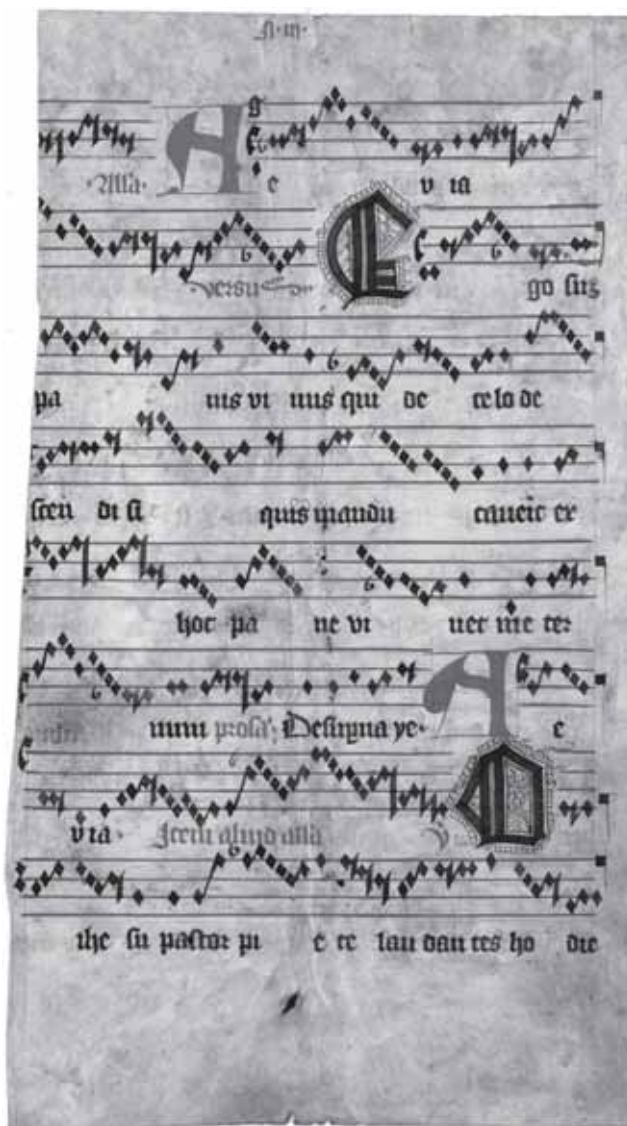 Alla. A e v ia
versus E go sum
pa nis vi uus qui de celo de
scen di si quis mandu cauerit ex
hoc pa ne vi uet in e ter
num prosa. A e
v ia. Item aliud alla
O ihe su pastor pi e te lau dan tes ho die